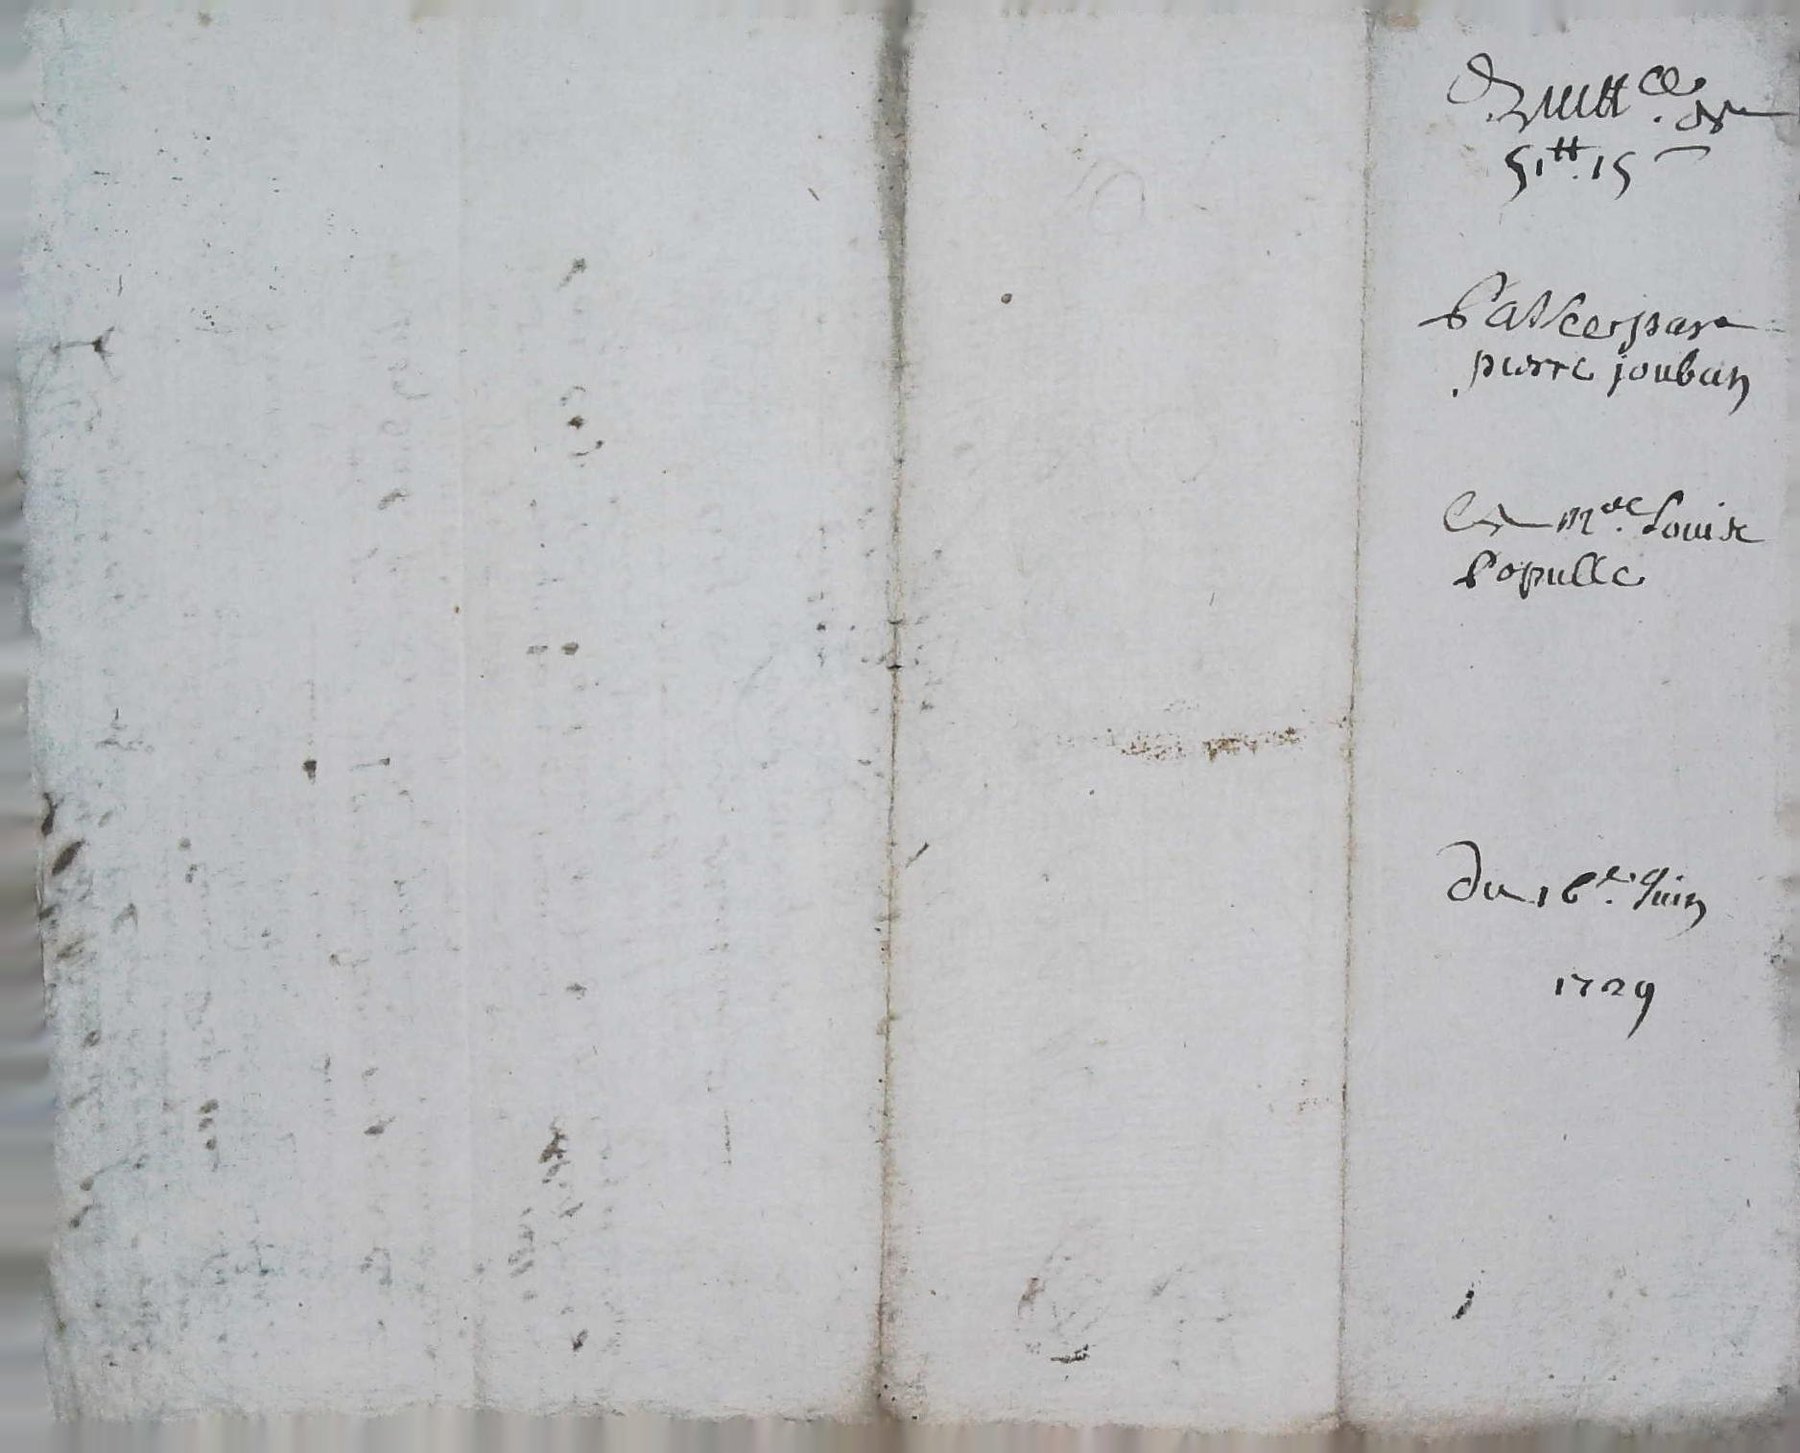 Quittce de
51tt. 15
Passee par
pierre joubin
Et mre. Louise
Populle
Du 16e. Juin
1729